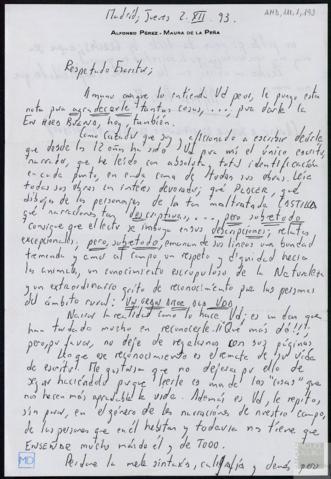 Madrid, Jueves 2. XII. 93.
AMD, 111, 1, 193
ALFONSO PÉREZ-MAURA DE LA PEÑA
Respetado Escritor;
Aunque no lo entienda Vd. peor, le pongo esta
nota para agradecerle tantas cosas, ...., para darle la
ENHORABUENA, hoy, también.
Como Cazador que soy, aficionado a escribir decirle
que desde los 12 años ha sido Vd. para mí el único escritor,
narrador, que he leído con absoluta, total identificación
en cada punto, en cada coma de todas sus obras. Leía
todas sus obras con interés devorador; qué PLACER, qué
dibujo de los personajes de la tan maltratada CASTILLA
qué narraciones tan descriptivas, .... pero sobretodo
consigue que el lector se imbuya en sus descripciones, relatos
excepcionales, pero, sobretodo, emanan de sus líneas una bondad
tremenda y amor al campo un respeto y dignidad hacia
los animales, un conocimiento escrupuloso de la Naturaleza
y un extraordinario grito de reconocimiento para las personas
del ámbito rural:
Narrar la realidad como lo hace Vd; es un don que
han tardado mucho en reconocerle. ¡¡Qué más dá!!!,
pero por favor, no deje de regalarnos con sus páginas
Luego ese reconocimiento es el remate de su vida
de escritor. Me gustaría que no dejase por ello de
seguir haciéndolo porque leerle es una de las "cosas" que
nos hacen más agradable la vida. Además es Vd, le repito,
sin par, en el género de las narraciones de nuestro campo,
de las personas que en él habitan y todavía nos tiene que
ENSEÑAR mucho más de él y de TODO.
Perdone la mala sintaxis, caligrafía y demás, pero
MD